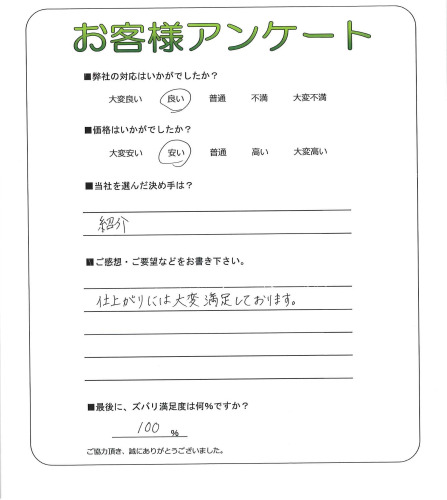 お客様アンケート
■弊社の対応はいかがでしたか?
大変良い 良い 普通 不満 大変不満
■価格はいかがでしたか?
大変安い 安い 普通 高い 大変高い
■当社を選んだ決め手は?
紹介
■ご感想・ご要望などをお書き下さい。
仕上がりには大変満足しております。
■最後に、ズバリ満足度は何%ですか?
100 %
ご協力頂き、誠にありがとうございました。